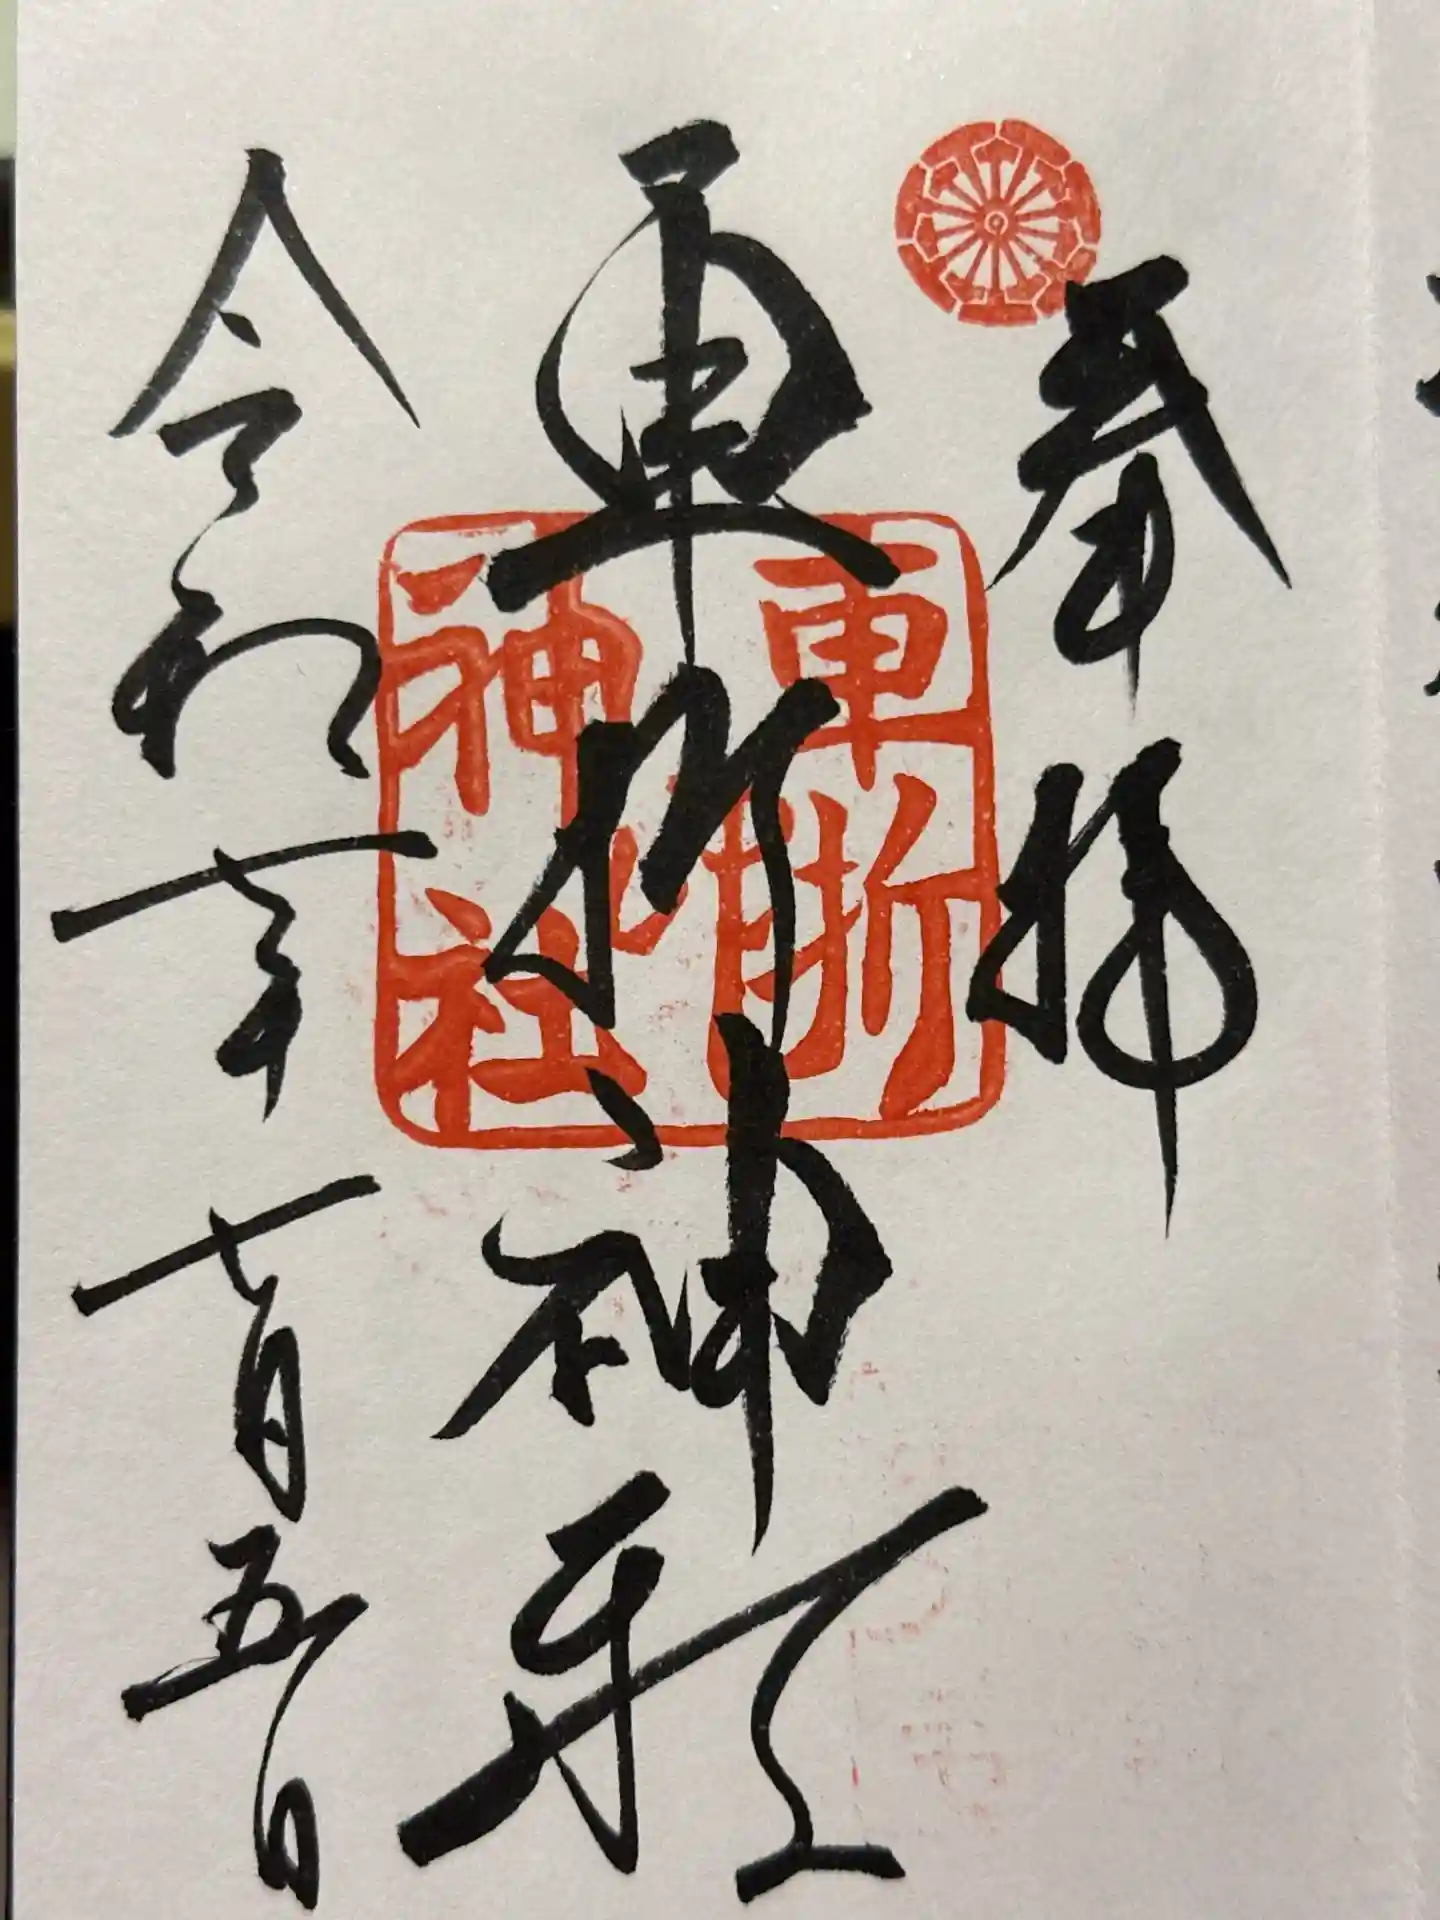 奉拝
車折神社
令和七年七月五日
車折
神社